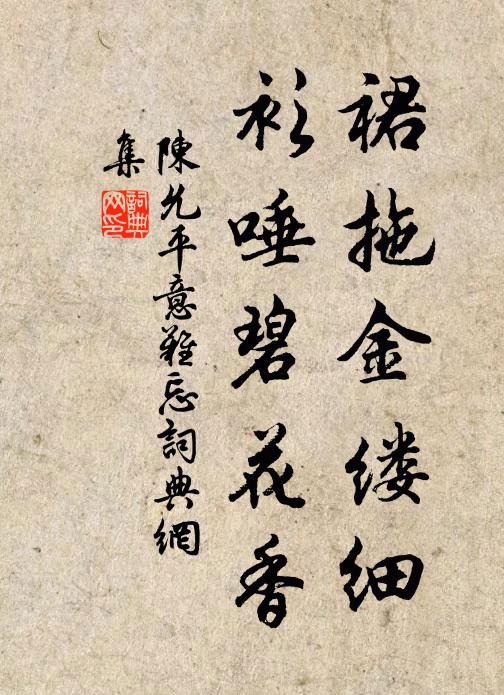 裙拖金缕细
衫唾碧花香
陳允平意難忘詞典網
集
詞典
网印